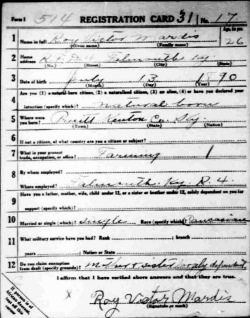 Form 1 514 REGISTRATION CARD 31 No. 17
1 Name in full Roy Victor Mardis 26
(Given name) (Family name)
2 Home address R.F.D. Falmouth Ky.
(No.) (Street) (City) (State)
3 Date of birth July 13 1890
(Month) (Day) (Year)
4 Are you (1) a natural-born citizen, (2) a naturalized citizen, (3) an alien, (4) or have you declared your
intention (specify which)? natural born
5 Where were you born? Kenton Co. Ky.
(Town) (State) (Nation)
6 If not a citizen, of what country are you a citizen or subject?
7 What is your present trade, occupation, or office? Farming 1
8 By whom employed?
Where employed? Falmouth Ky R. 4
9 Have you a father, mother, wife, child under 12, or a sister or brother under 12, solely dependent on you for
support (specify which)?
10 Married or single (which)? Single Race (specify which)? Caucasian
11 What military service have you had? Rank branch
years Nation or State
12 Do you claim exemption from draft (specify grounds)? mother & sister dependent
I affirm that I have verified above answers and that they are true.
x Roy Victor Mardis
(Signature or mark)